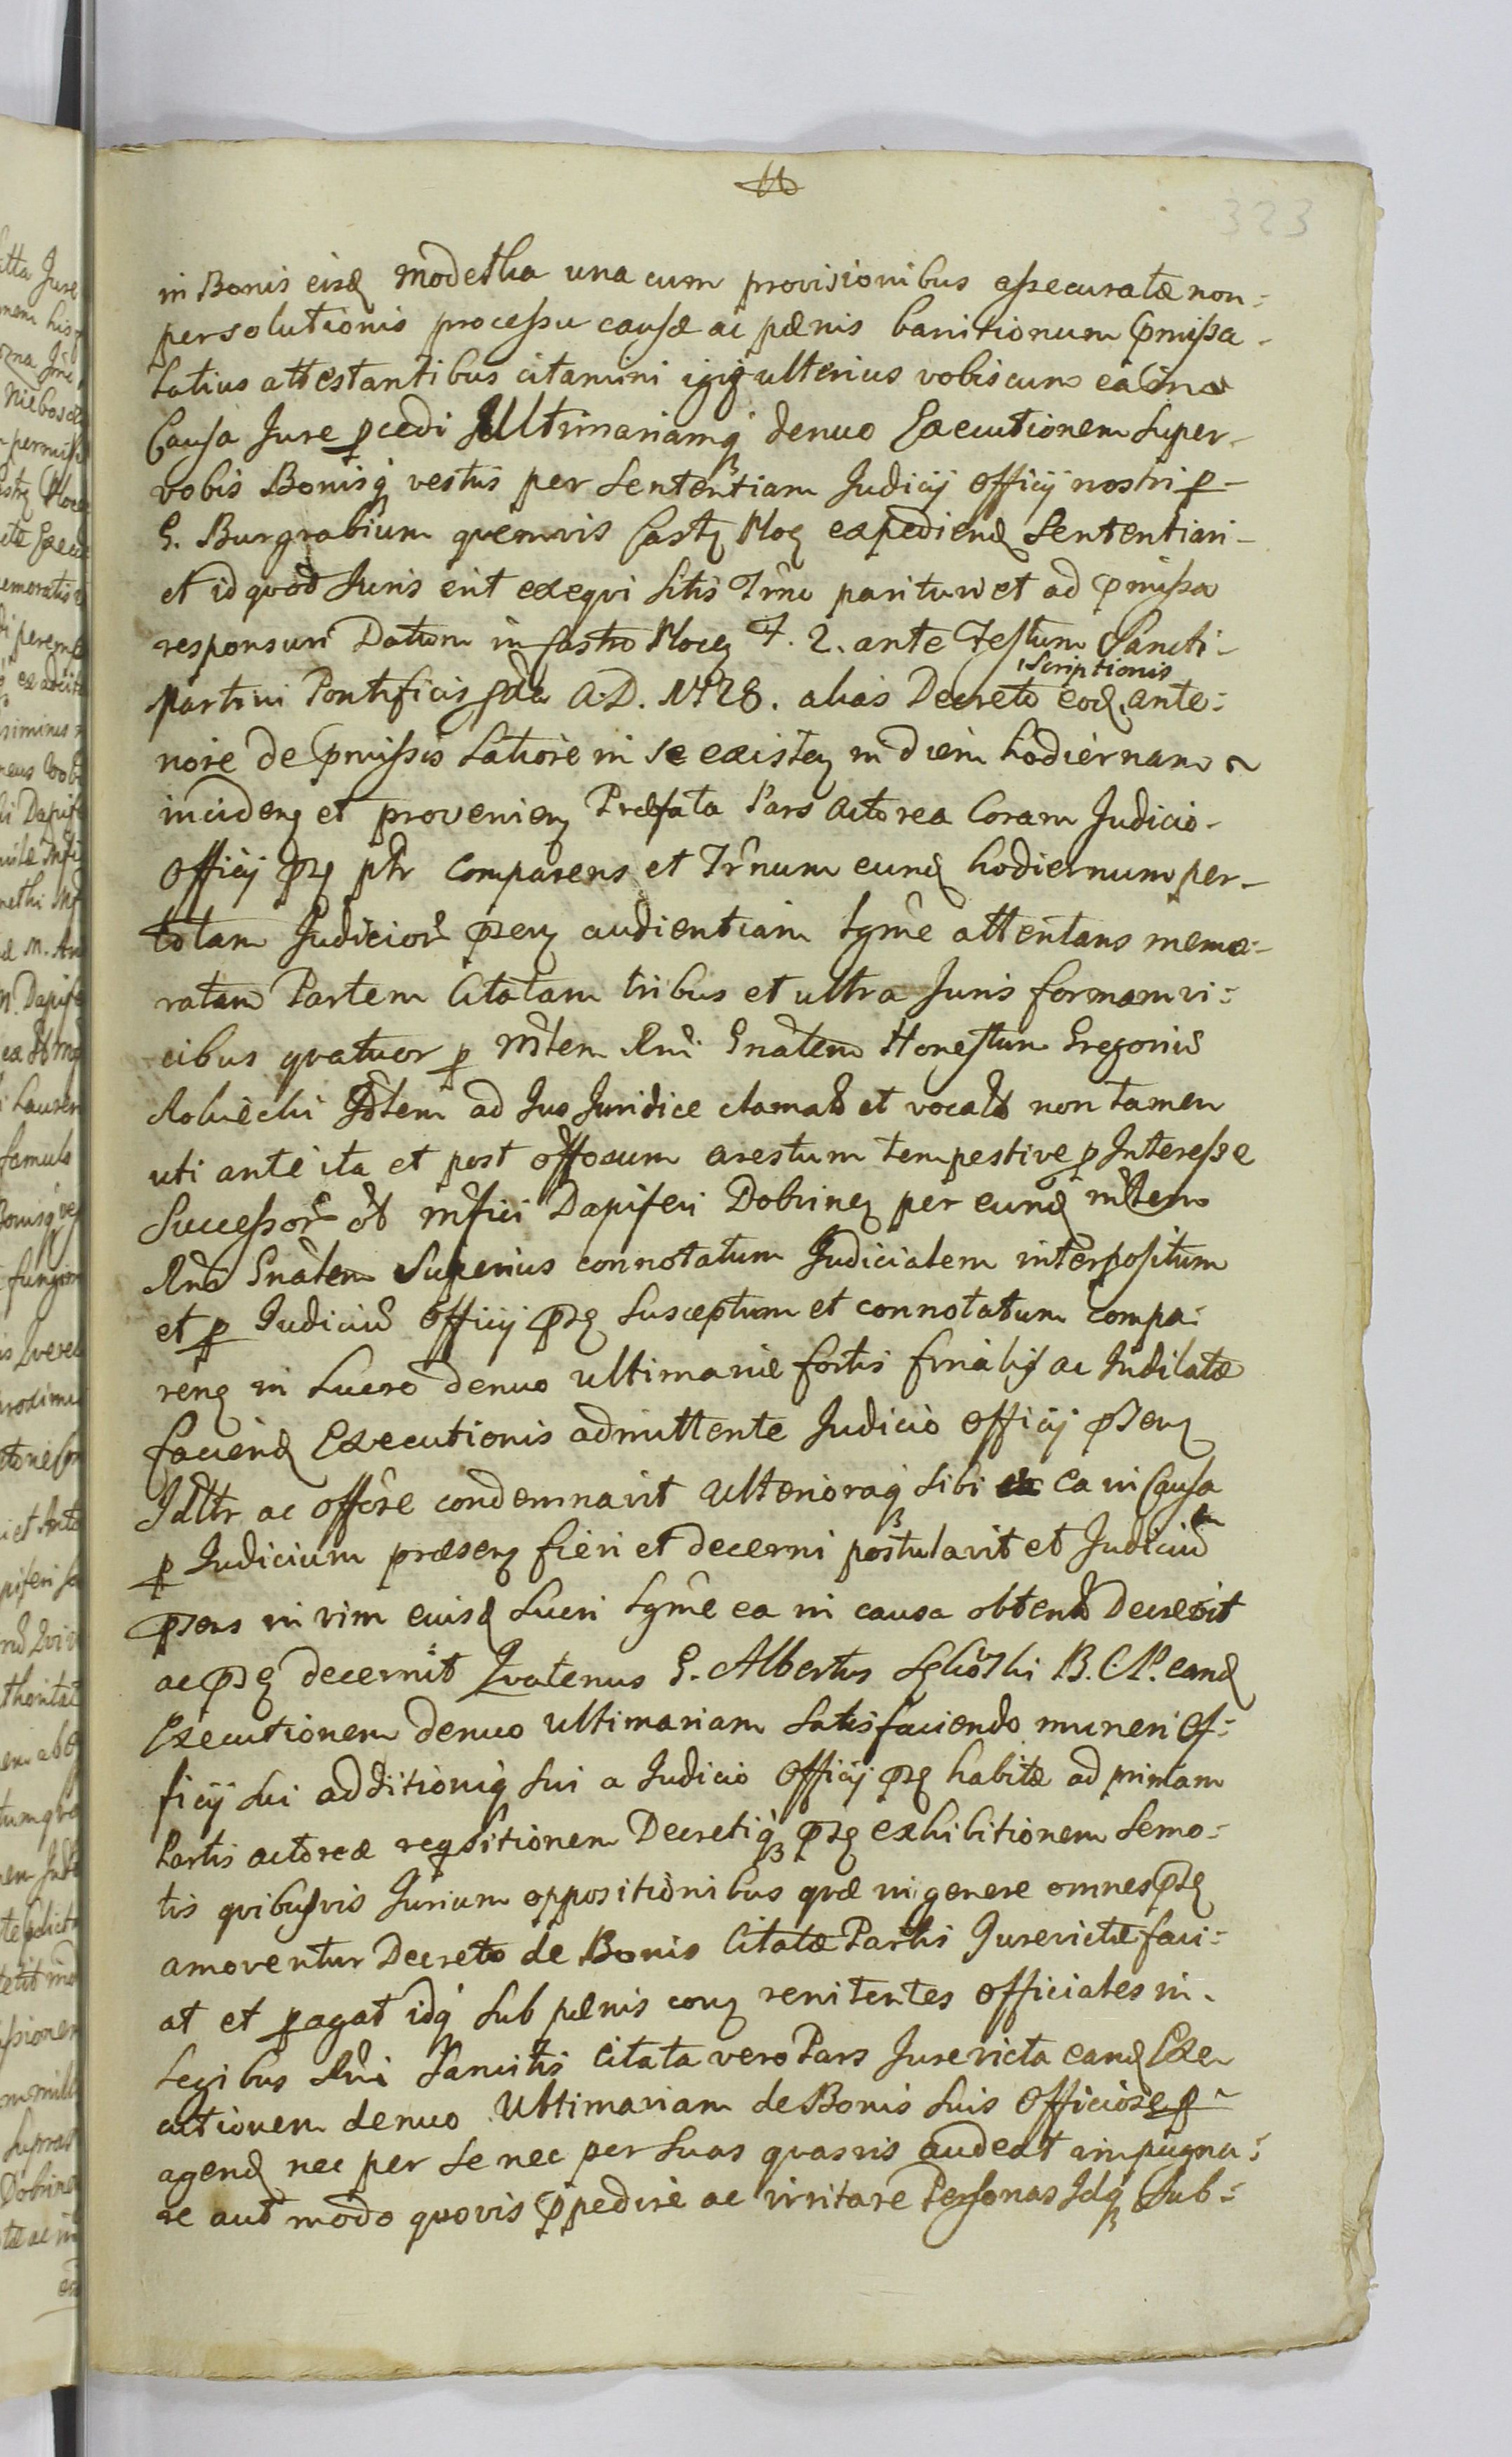 323
in Bonis eisd Modetka una cum provisionibus assecuratæ non-
persolutionis processu causæ ac pænis banitionum Pmissa-
latius attestantibus citamini igit ulterius vobiscum ea in
Causa Jure pcedi Ultimariamq denuo Executionem super-
vobis Bonisq vestris per Sententiam Judicij Officij nostri p-
G. Burgrabium quemvis Castr Ploc expediend Sententiari-
et id quod Juris erit exequi sitis Trno parituri et ad Pmissa
responsuri Datum in Castro Plocen F. 2. ante Festum Sancti-
Martini Pontificis A.D. 1728. alias Decreto eod ante-
scriptionis
nore de Pmissis latiore in se existen in diem hodiernam
inciden et provenien Præfata Pars Actorea Coram Judicio-
Officij Psr ptr Comparens et Trnum eund hodiernum per-
totam Judicior Psen audientiam Lgme attentans memo-
ratam Partem Citatam tribus et ultra Juris formam vi-
cibus quatuor p Mtem Rni Gnatem Honestum Gregoriu
ad Jus Juridice clamat et vocat non tamen
uti ante ita et post arestum tempestive p Interesse
Successor Mfici Dapiferi Dobrinen per eund Mtem
Rni Gnatem Superius connotatum Judicialem interpositum
et p Judiciu Officij Psr susceptum et connotatum compa-
ren in Lucro denuo ultimariæ fortis finalis ac Indilatæ
faciend Executionis admittente Judicio Officij Psen
Idltr ac offose condemnavit Ulterioraq sibi ea in Causa
p Judicium præsen fieri et decerni postulavit et Judiciu
Psens in vim eiusd Lucri Lgme ea in causa obtent Decrevit
ac Psr decernit Qvatenus G. Albertus B.C.P. eand
Executionem denuo Ultimariam satisfaciendo muneri Of-
ficij sui additioniq sui a Judicio Officij Psr habitæ ad primam
Partis actoreæ reqsitionem Decretiq Psr exhibitionem semo-
tis quibusvis Jurium oppositionibus quæ in genere omnes Psr
amoventur Decreto de Bonis Citatæ Partis Jurevictæ faci-
at et pagat idq sub pænis con renitentes Officiales in-
Legibus Rni Sancitis Citata vero Pars Jurevicta eand Exe
cutionem denuo Ultimariam de Bonis suis Officiose p-
agend nec per se nec per suas quasvis audeat impugna-
re aut modo quovis Ppedire ac irritare Personas Idq Sub-